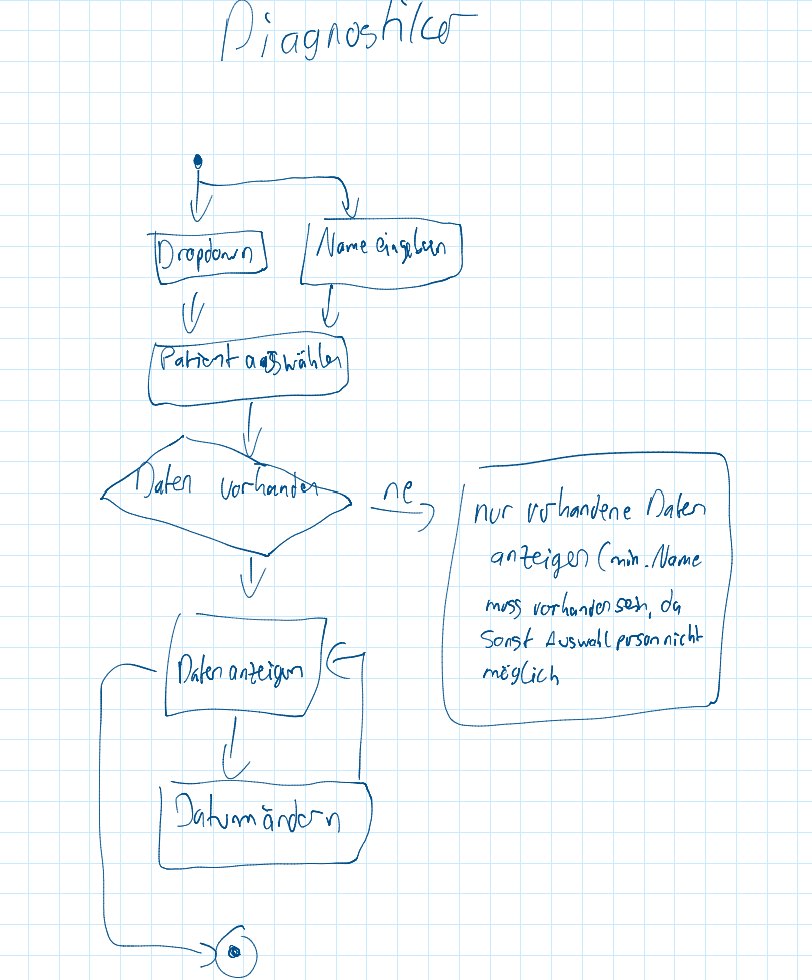 Diagnostiker
Dropdown
Name eingeben
Patient auswählen
Daten vorhanden
ne
nur vorhandene Daten
anzeigen (min. Name
muss vorhanden sein, da
sonst Auswahl person nicht
möglich
Daten anzeigen
Datum ändern